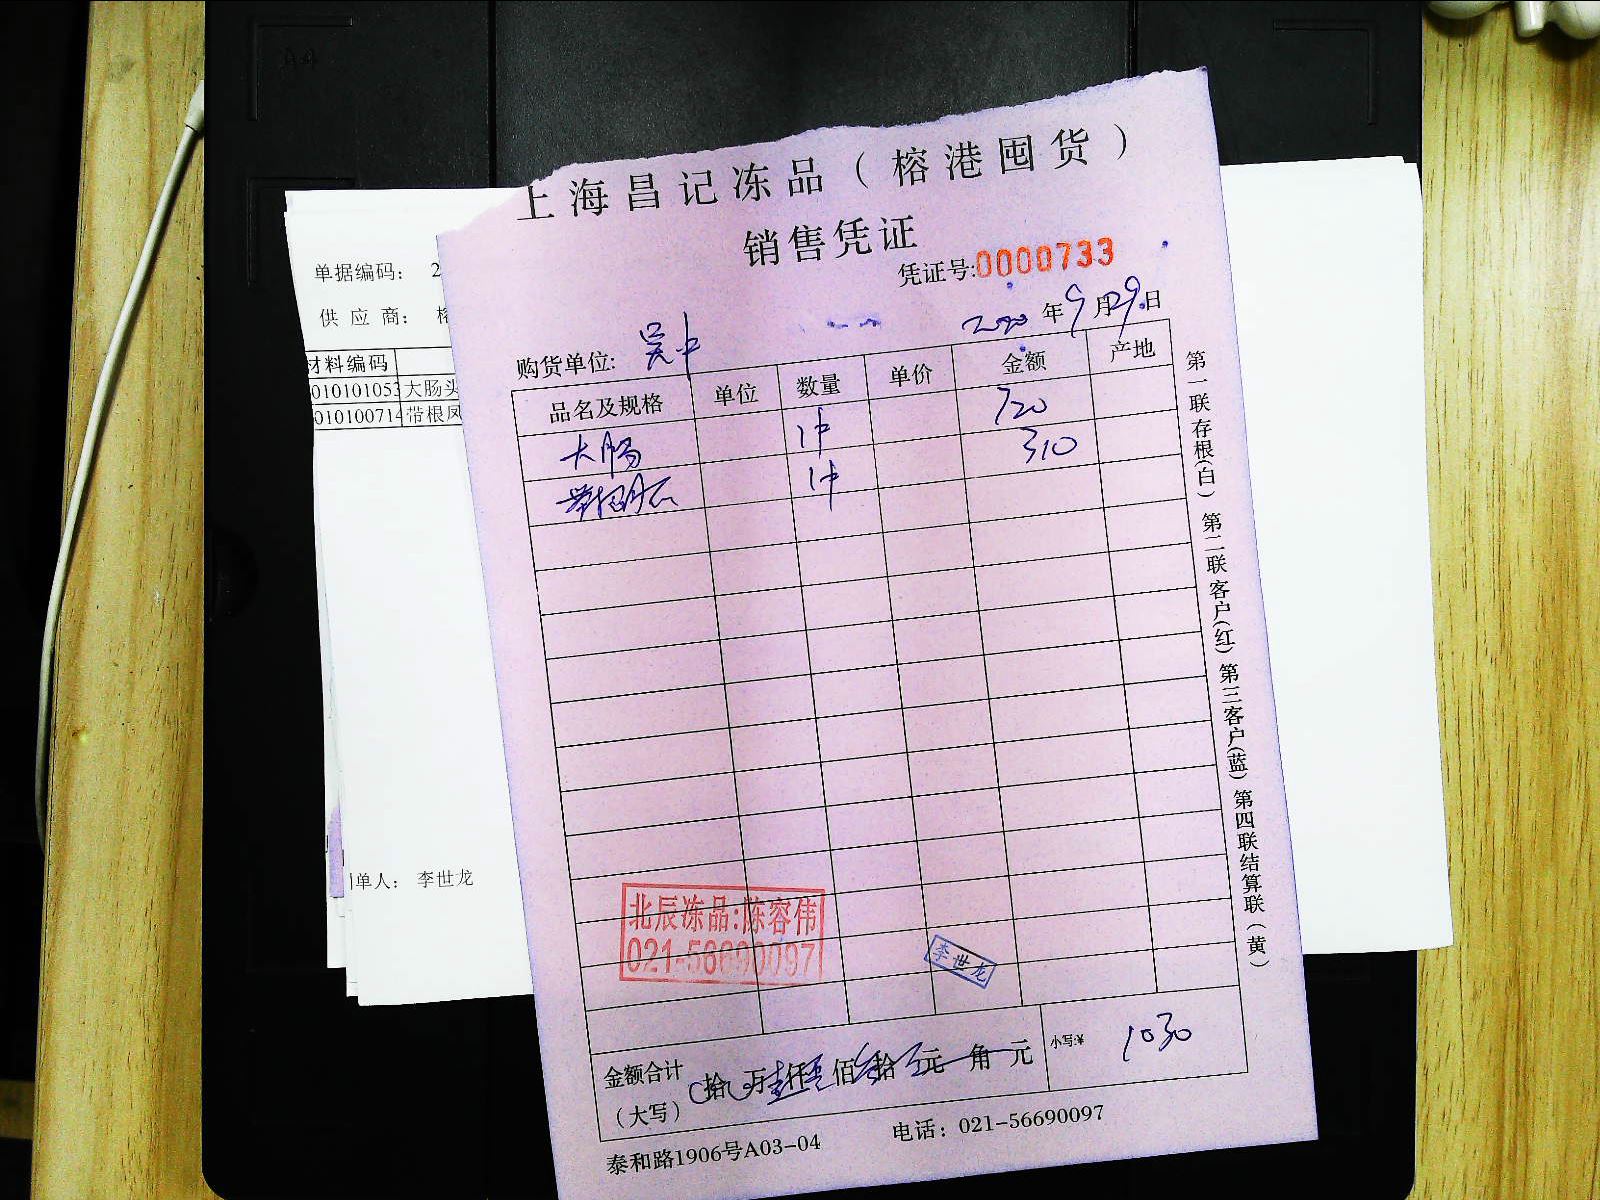 上海昌记冻品（榕港囤货）
销售凭证
凭证号:0000733
2020年9月29日
购货单位: 吴中
品名及规格 单位 数量 单价 金额 产地
大肠 1件 720
1件 310
北辰冻品:陈容伟
021-56690097
李世龙
金额合计（大写） 拾 万 仟 佰 拾 元 角 元
小写:¥ 1030
泰和路1906号A03-04 电话：021-56690097
第一联存根(白) 第二联客户(红) 第三客户(蓝) 第四联结算联（黄）
单据编码： 2
供 应 商：
材料编码
010101053 大肠头
010100714 带根凤
单人： 李世龙